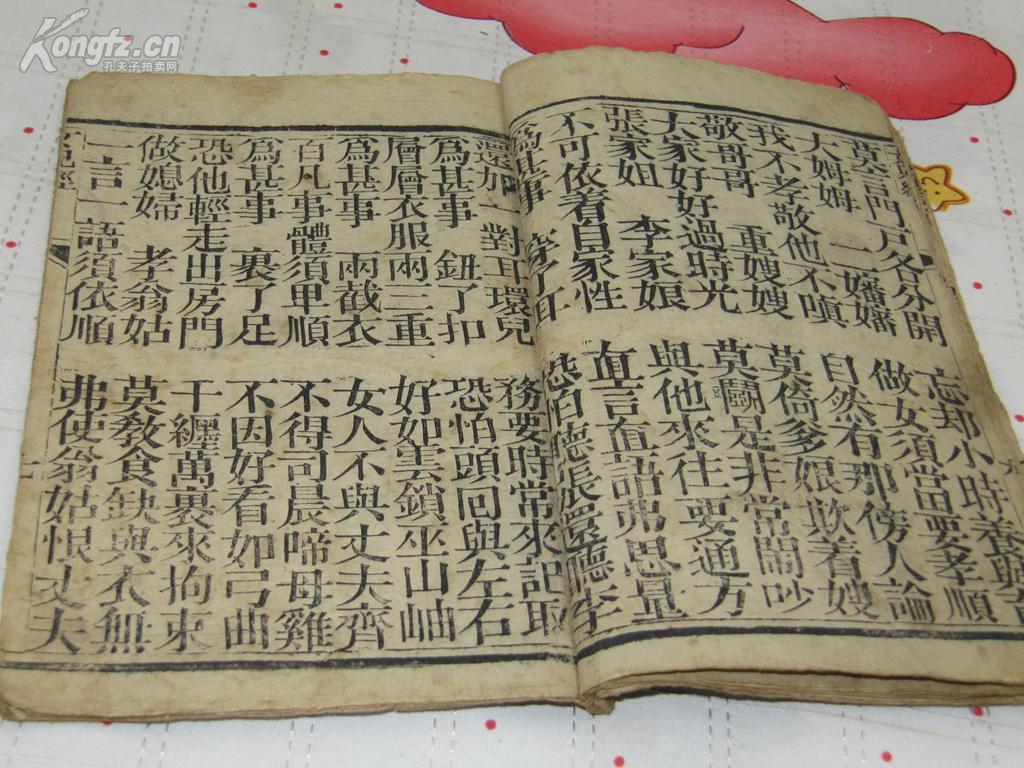 莫言門戶各分開 忘却小時養與
大姆姆 二嬸嬸 做女須當要孝順
我不孝敬他不嗔 自然有那傍人論
敬哥哥 重嫂嫂 莫倚爹娘欺着嫂
大家好好過時光 莫鬭是非常鬧吵
張家姐 李家娘 與他來往要通方
不可依着自家性 直言直語弗思量
爲甚事 穿了耳 恐怕德張還德李
還加一對耳環兒 務要時常來記取
爲甚事 鈕了扣 恐怕頭回與左右
層層衣服兩三重 好如雲鎖坐山岫
爲甚事 兩截衣 女人不與丈夫齊
百凡事體須甲順 不得司晨啼母雞
爲甚事 裹了足 不因好看如弓曲
恐他輕走出房門 千纏萬裹來拘束
做媳婦 孝翁姑 莫教食缺與衣無
一言一語須依順 弗使翁姑恨丈夫
Kongfz.cn
孔夫子拍卖网